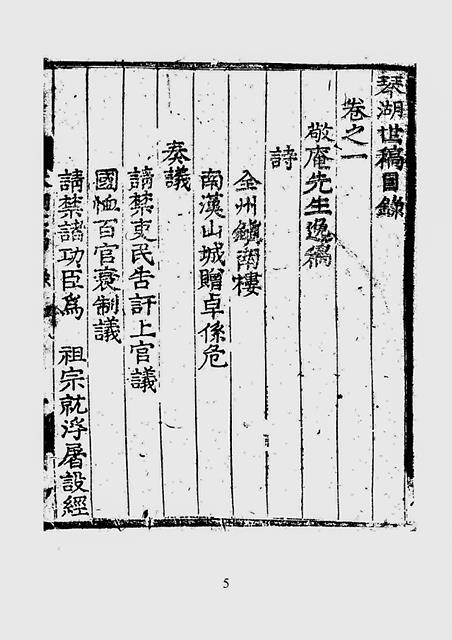 琴湖世稿目錄
卷之一
敬庵先生逸稿
詩
全州鎮南樓
南漢山城贈卓係危
奏議
請禁吏民告訐上官議
國恤百官衰制議
請禁諸功臣爲　祖宗就浮屠設經
5